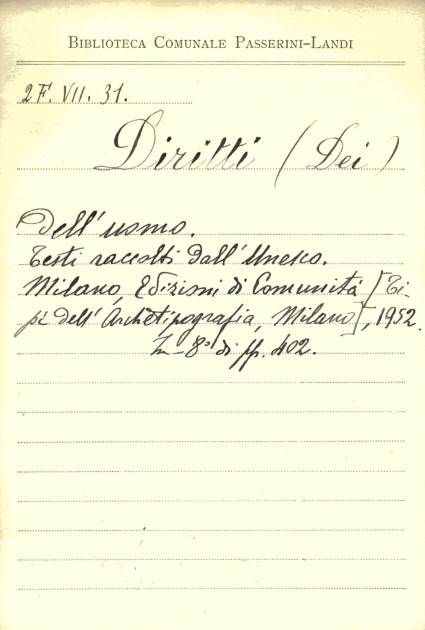 BIBLIOTECA COMUNALE PASSERINI-LANDI
2F. VII. 31.
Diritti (Dei)
dell'uomo.
Testi raccolti dall'Unesco.
Milano, Edizioni di Comunità [Ti-
pi dell'Archetipografia, Milano], 1952.
In-8° di pp. 402.